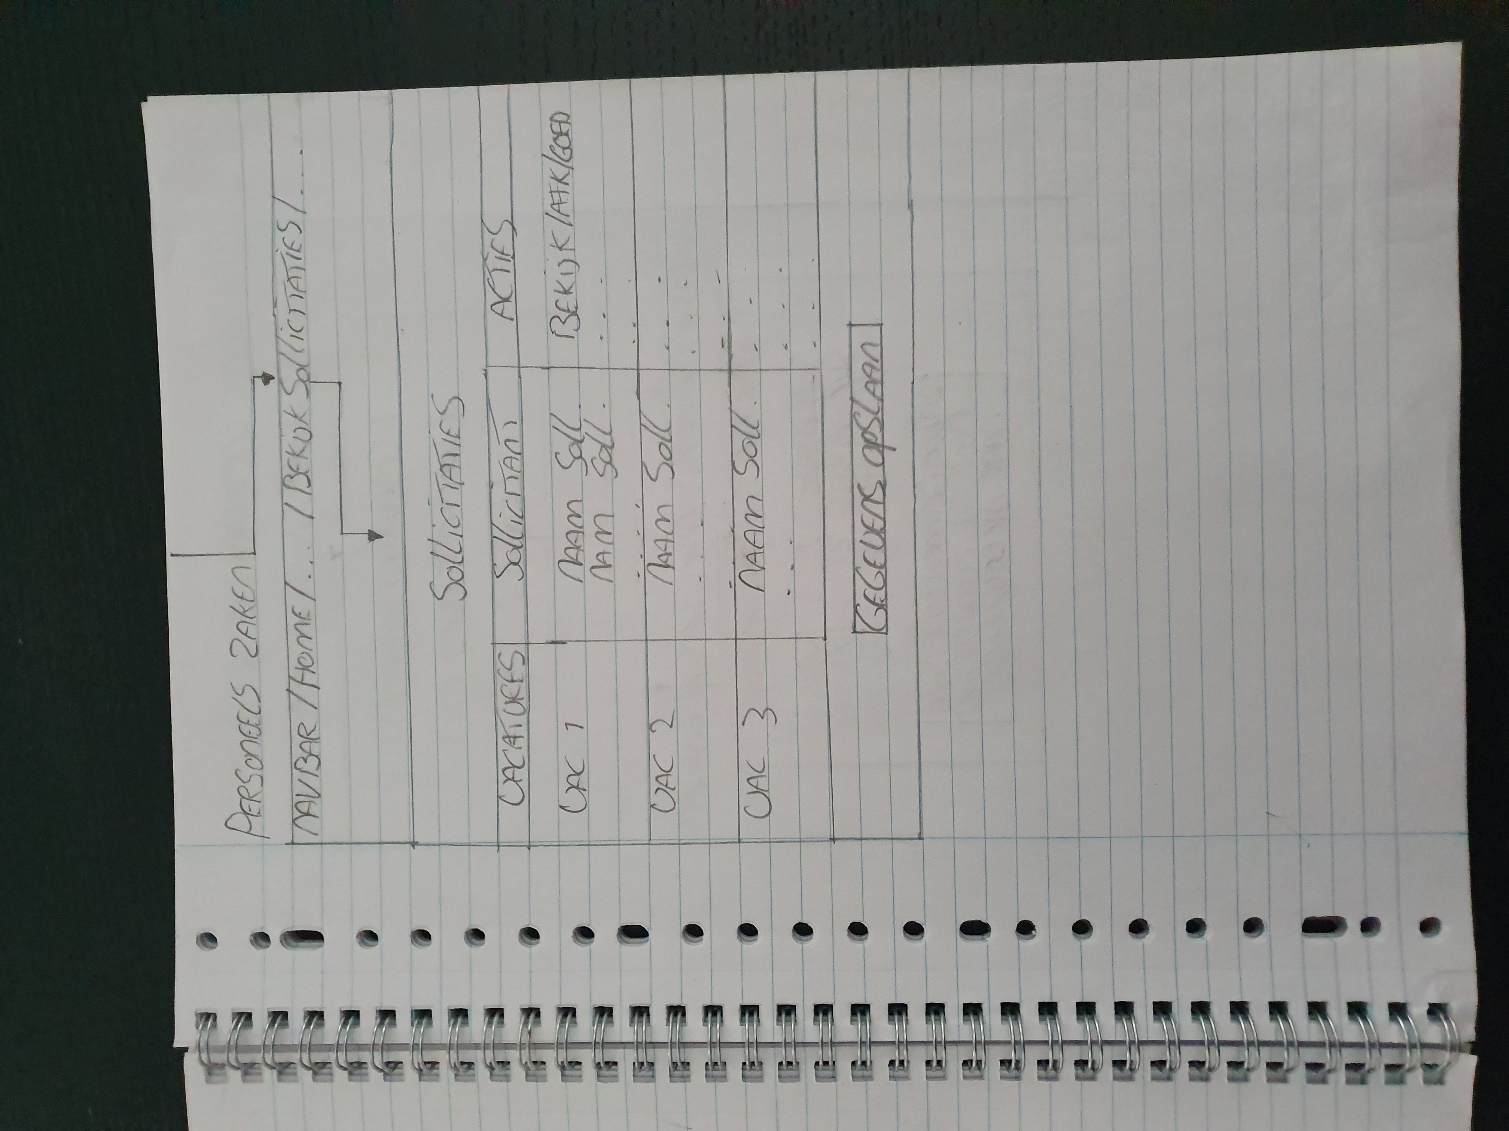 PERSONEELS ZAKEN
NAVBAR / HOME / ... / BEKIJK SOLLICITATIES / ....
SOLLICITATIES
VACATURES SOLLICITANT ACTIES
VAC 1 NAAM SOLL. BEKIJK/AFK/GOED
NAM SOLL. . . .
VAC 2 NAAM SOLL. . . .
VAC 3 NAAM SOLL. . . .
GEGEVENS OPSLAAN